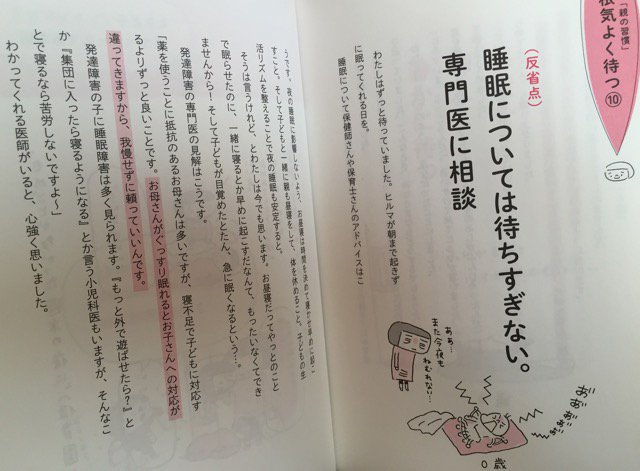 「親の習慣」
根気よく待つ⑩
(反省点)
睡眠については待ちすぎない。
専門医に相談
わたしはずっと待っていました。ヒルマが朝まで起きず
に眠ってくれる日を。
睡眠について保健師さんや保育士さんのアドバイスはこ
ああ…
また今夜も
ねむれない…
おぉ゛
おぉ゛おぉ゛
0歳
うです。夜の睡眠に影響しないよう、お昼寝は時間を決めて寝かせ早めに起こ
すこと、そして子どもと一緒に親も昼寝をして、体を休めること。子どもの生
活リズムを整えることで夜の睡眠も安定すると。
そうは言うけれど、とわたしは今でも思います。お昼寝だってやっとのこと
で眠らせたのに、一緒に寝るとか早めに起こすだなんて、もったいなくてでき
ませんから！そして子どもが目覚めたとたん、急に眠くなるという…。
発達障害の専門医の見解はこうです。
「薬を使うことに抵抗のあるお母さんは多いですが、寝不足で子どもに対応す
るよりずっと良いことです。お母さんがぐっすり眠れるとお子さんへの対応が
違ってきますから、我慢せずに頼っていいんです。
発達障害の子に睡眠障害は多く見られます。『もっと外で遊ばせたら？』と
か『集団に入ったら寝るようになる』とか言う小児科医もいますが、そんなこ
とで寝るなら苦労しないですよ〜」
わかってくれる医師がいると、心強く思いました。